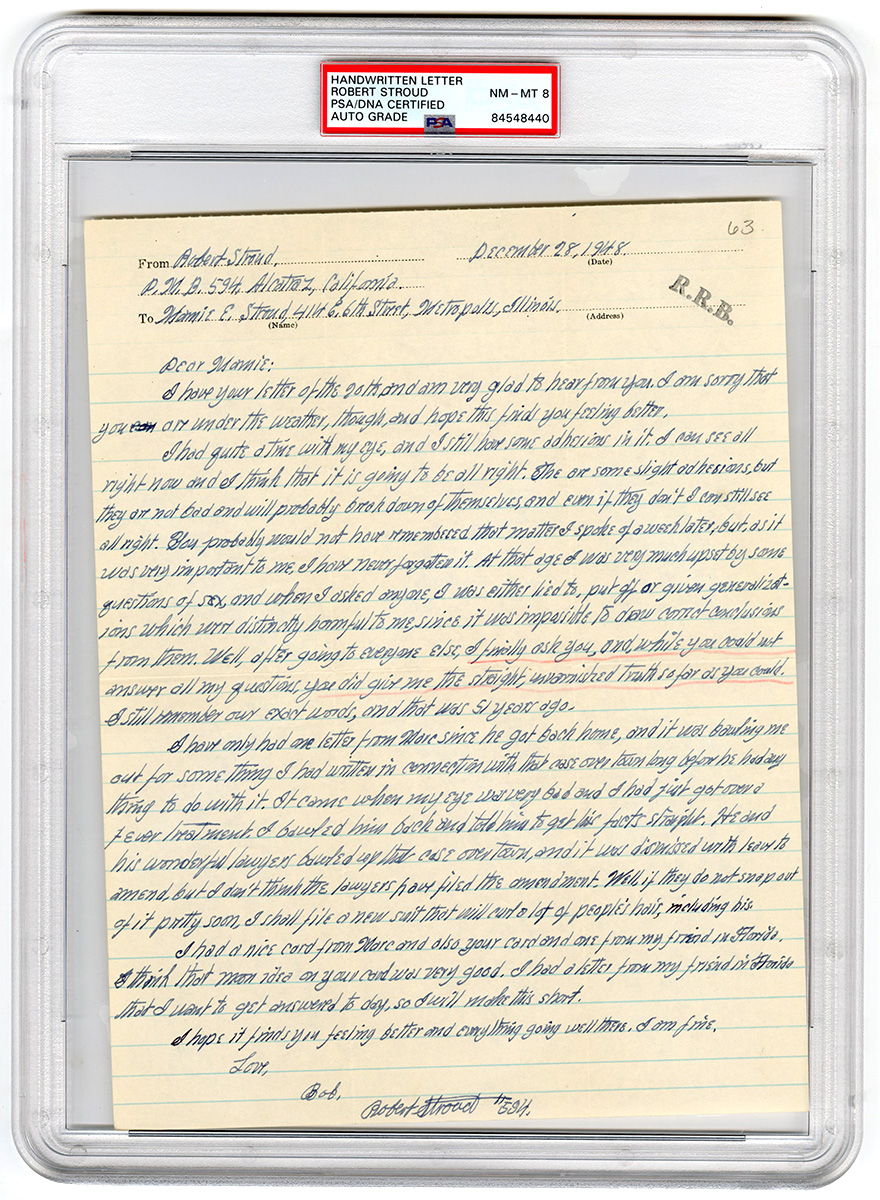 HANDWRITTEN LETTER
ROBERT STROUD NM – MT 8
PSA/DNA CERTIFIED
AUTO GRADE PSA 84548440
63
From Robert Stroud, December 28, 1948.
(Date)
P.M.B. 594. Alcatraz, California.
R.R.B.
To Mamie E. Stroud, 414 E. 6th Street, Metropolis, Illinois.
(Name) (Address)
Dear Mamie:
I have your letter of the 20th, and am very glad to hear from you. I am sorry that
you are under the weather, though, and hope this finds you feeling better.
I had quite a time with my eye, and I still have some adhesions in it. I can see all
right now and I think that it is going to be all right. The are some slight adhesions, but
they are not bad and will probably break down of themselves, and even if they don't I can still see
all right. You probably would not have remembered that matter I spoke of a week later, but, as it
was very important to me, I have never forgoten it. At that age I was very much upset by some
questions of sex, and when I asked anyone, I was either lied to, put off or given generalizat-
ions which were distinctly harmful to me, since it was impossible to draw correct conclusions
from them. Well, after going to everyone else, I finally ask you, and, while you could not
answer all my questions, you did give me the straight, unvarnished truth so far as you could.
I still remember our exact words, and that was 51 years ago.
I have only had one letter from Marc since he got back home, and it was bawling me
out for some thing I had written in connection with that case over town long before he had any
thing to do with it. It came when my eye was very bad and I had just got over a
fever treatment. I bawled him back and told him to get his facts straight. He and
his wonderful lawyers bawled up that case over town, and it was dismissed with leave to
amend, but I don't think the lawyers have filed the amendment. Well, if they do not snap out
of it pretty soon, I shall file a new suit that will curl a lot of people's hair, including his
I had a nice card from Marc and also your card and one from my friend in Florida.
I think that moon idea on your card was very good. I had a letter from my friend in Florida
that I want to get answered to day, so I will make this short.
I hope it finds you feeling better and everything going well there. I am fine.
Love,
Bob.
Robert Stroud #594.